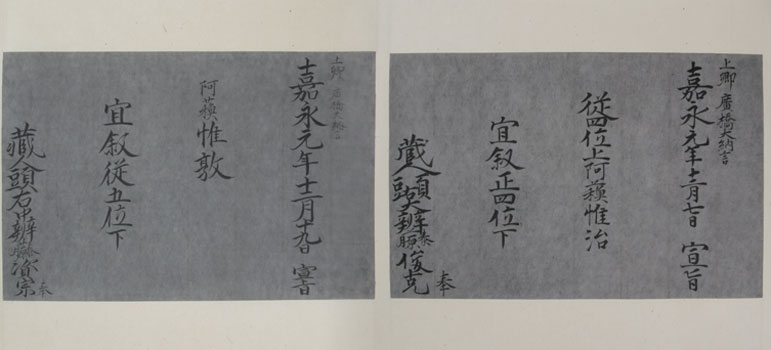 上卿 廣橋大納言
嘉永元年十二月七日 宣旨
従四位上阿蘓惟治
宜叙正四位下
蔵人頭大辨藤原俊克 奉
上卿 廣橋大納言
嘉永元年十二月十九日 宣旨
阿蘓惟敦
宜叙従五位下
蔵人頭右中辨藤原資宗 奉